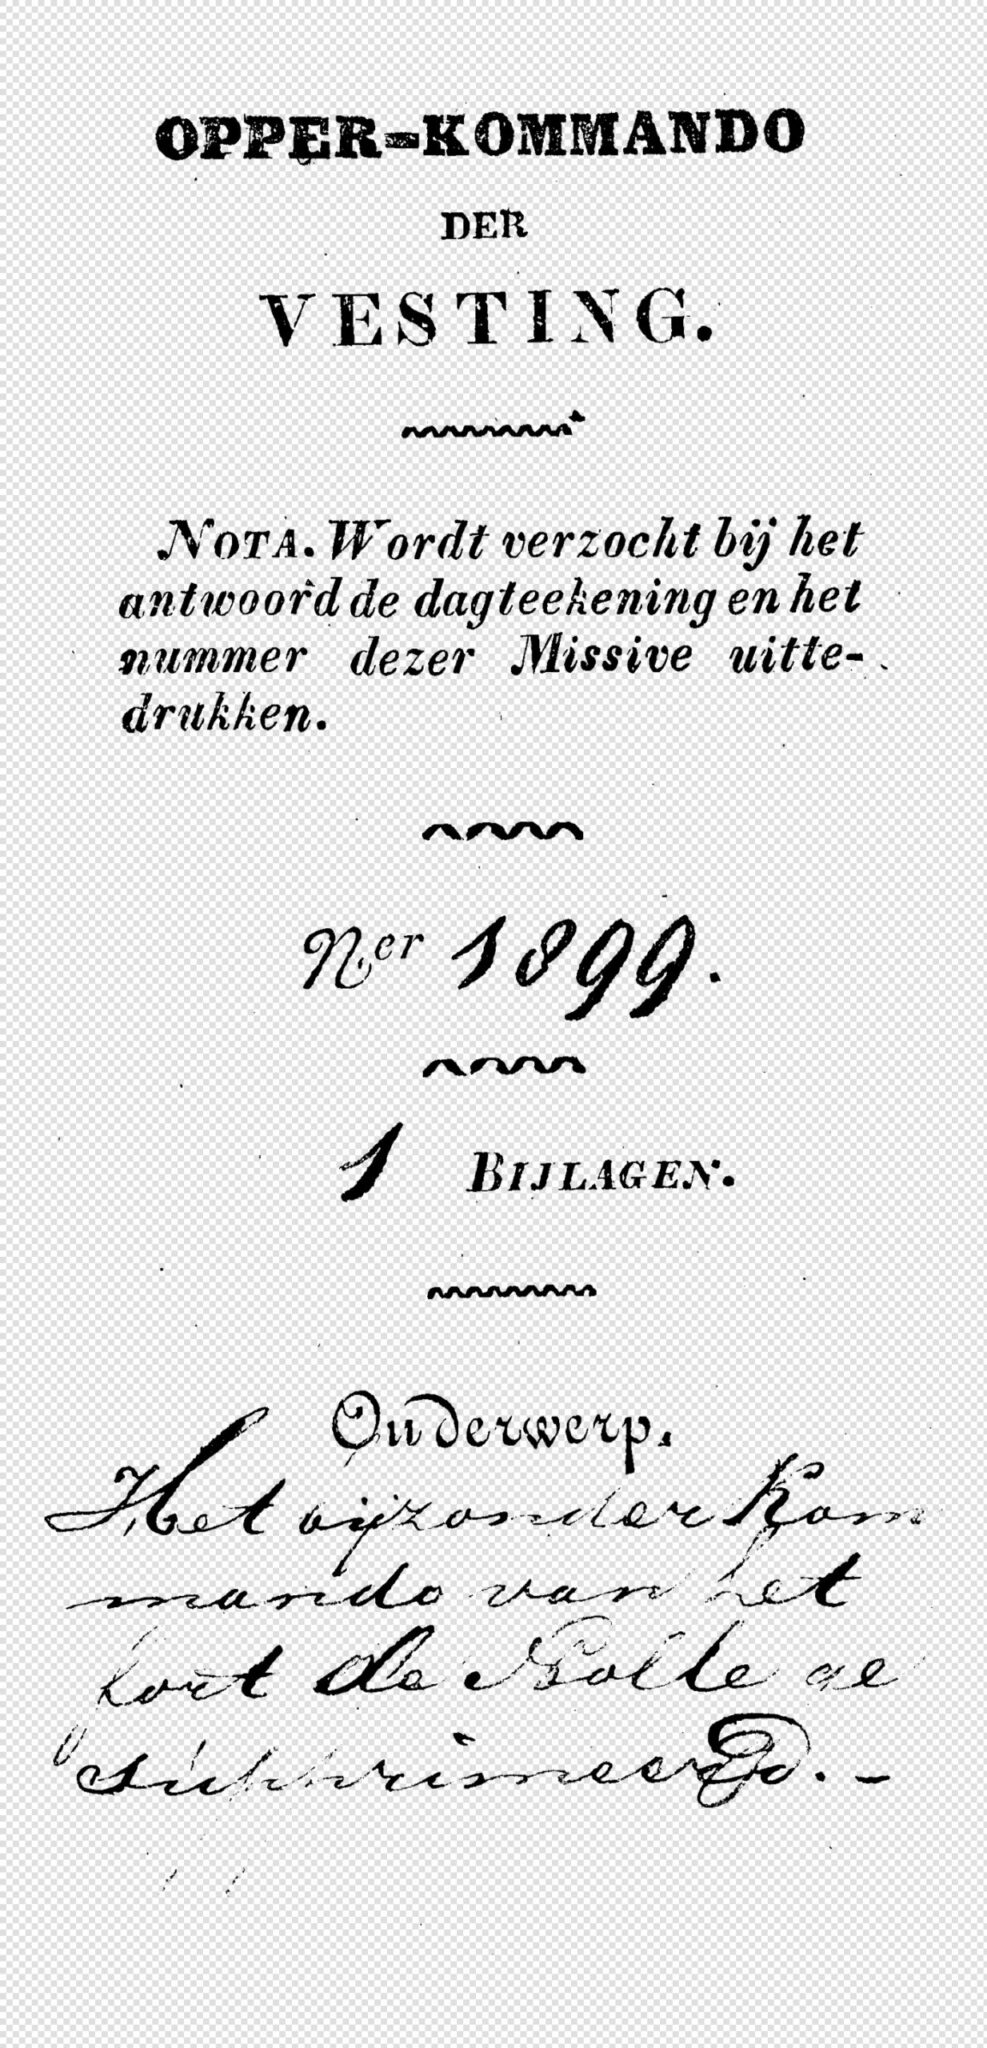 OPPER-KOMMANDO
DER
VESTING.
NOTA. Wordt verzocht bij het
antwoord de dagteekening en het
nummer dezer Missive uitte-
drukken.
Ner 1899.
1 BIJLAGEN.
Onderwerp.
Het bijzonder Kom
mando van het
fort de Nolle ge
supprimeerd. -